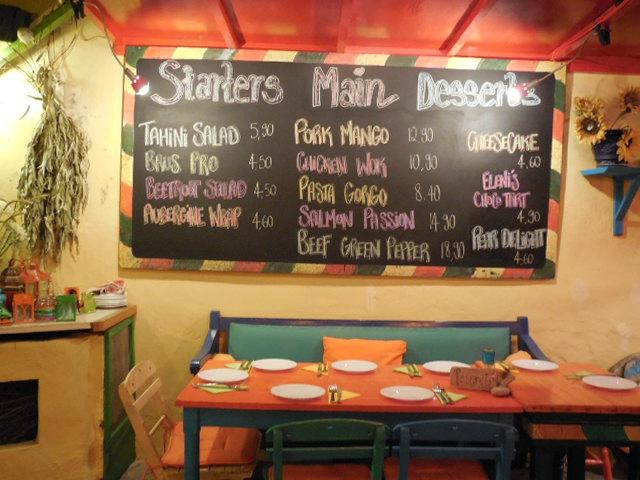 Starters Main Desserts
TAHINI SALAD 5,90
BAUS PRO 4.50
BEETROOT SALAD 4,50
AUBERGINE WRAP 4,60
PORK MANGO 12,90
CHICKEN WOK 10,90
PASTA GORGO 8.40
SALMON PASSION 14.90
BEEF GREEN PEPPER 18,90
CHEESECAKE
4,60
ELENI'S
CHOCO TART
4,90
PEAR DELIGHT
4.60